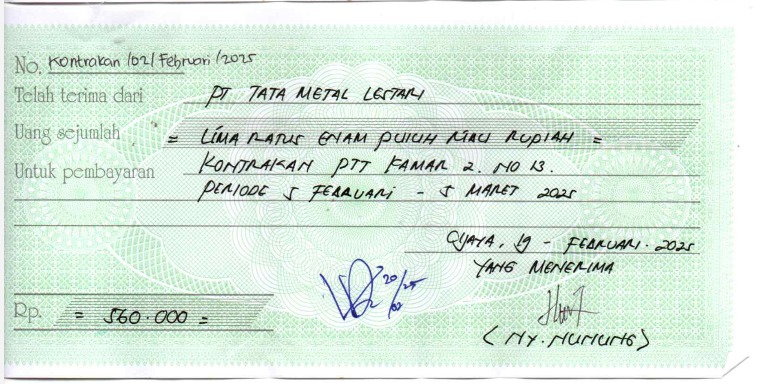 No. Kontrakan /02/ Februari /2025
Telah terima dari PT TATA METAL LESTARI
Uang sejumlah = LIMA RATUS ENAM PULUH RIBU RUPIAH =
Untuk pembayaran KONTRAKAN PTT KAMAR 2. NO 13.
PERIODE 5 FEBRUARI - 5 MARET 2025
19 - FEBRUARI . 2025
YANG MENERIMA
20/02 25
Rp. = 560.000 =
( NY. NUNUNG )